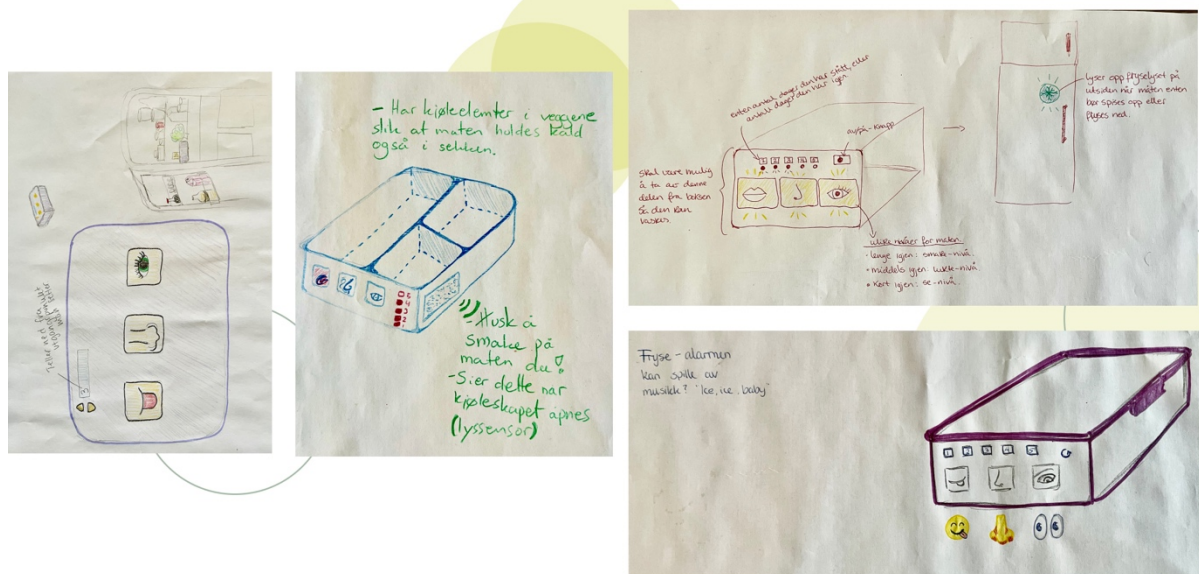 Teller ned fra
utgangspunktet
3
- Har kjøleelemter i veggene
slik at maten holdes kald
også i sekken.
- Husk å
smake på
maten du!
- Sier dette når
kjøleskapet åpnes
(lyssensor)
enten antall dager den har stått, eller
antall dager den har igjen
av/på-knapp
1 2 3 4 5
Skal være mulig
å ta av denne
delen fra boksen
så den kan
vaskes
ulike nivåer for maten
- lenge igjen: smake-nivå.
- middels igjen: lukte-nivå.
• Kort igjen: se-nivå.
lyser opp fryselyset på
utsiden når maten enten
bør spises opp eller
fryses ned.
Fryse-alarmen
kan spille av
musikk? 'Ice, ice, baby'
1 2 3 4 5